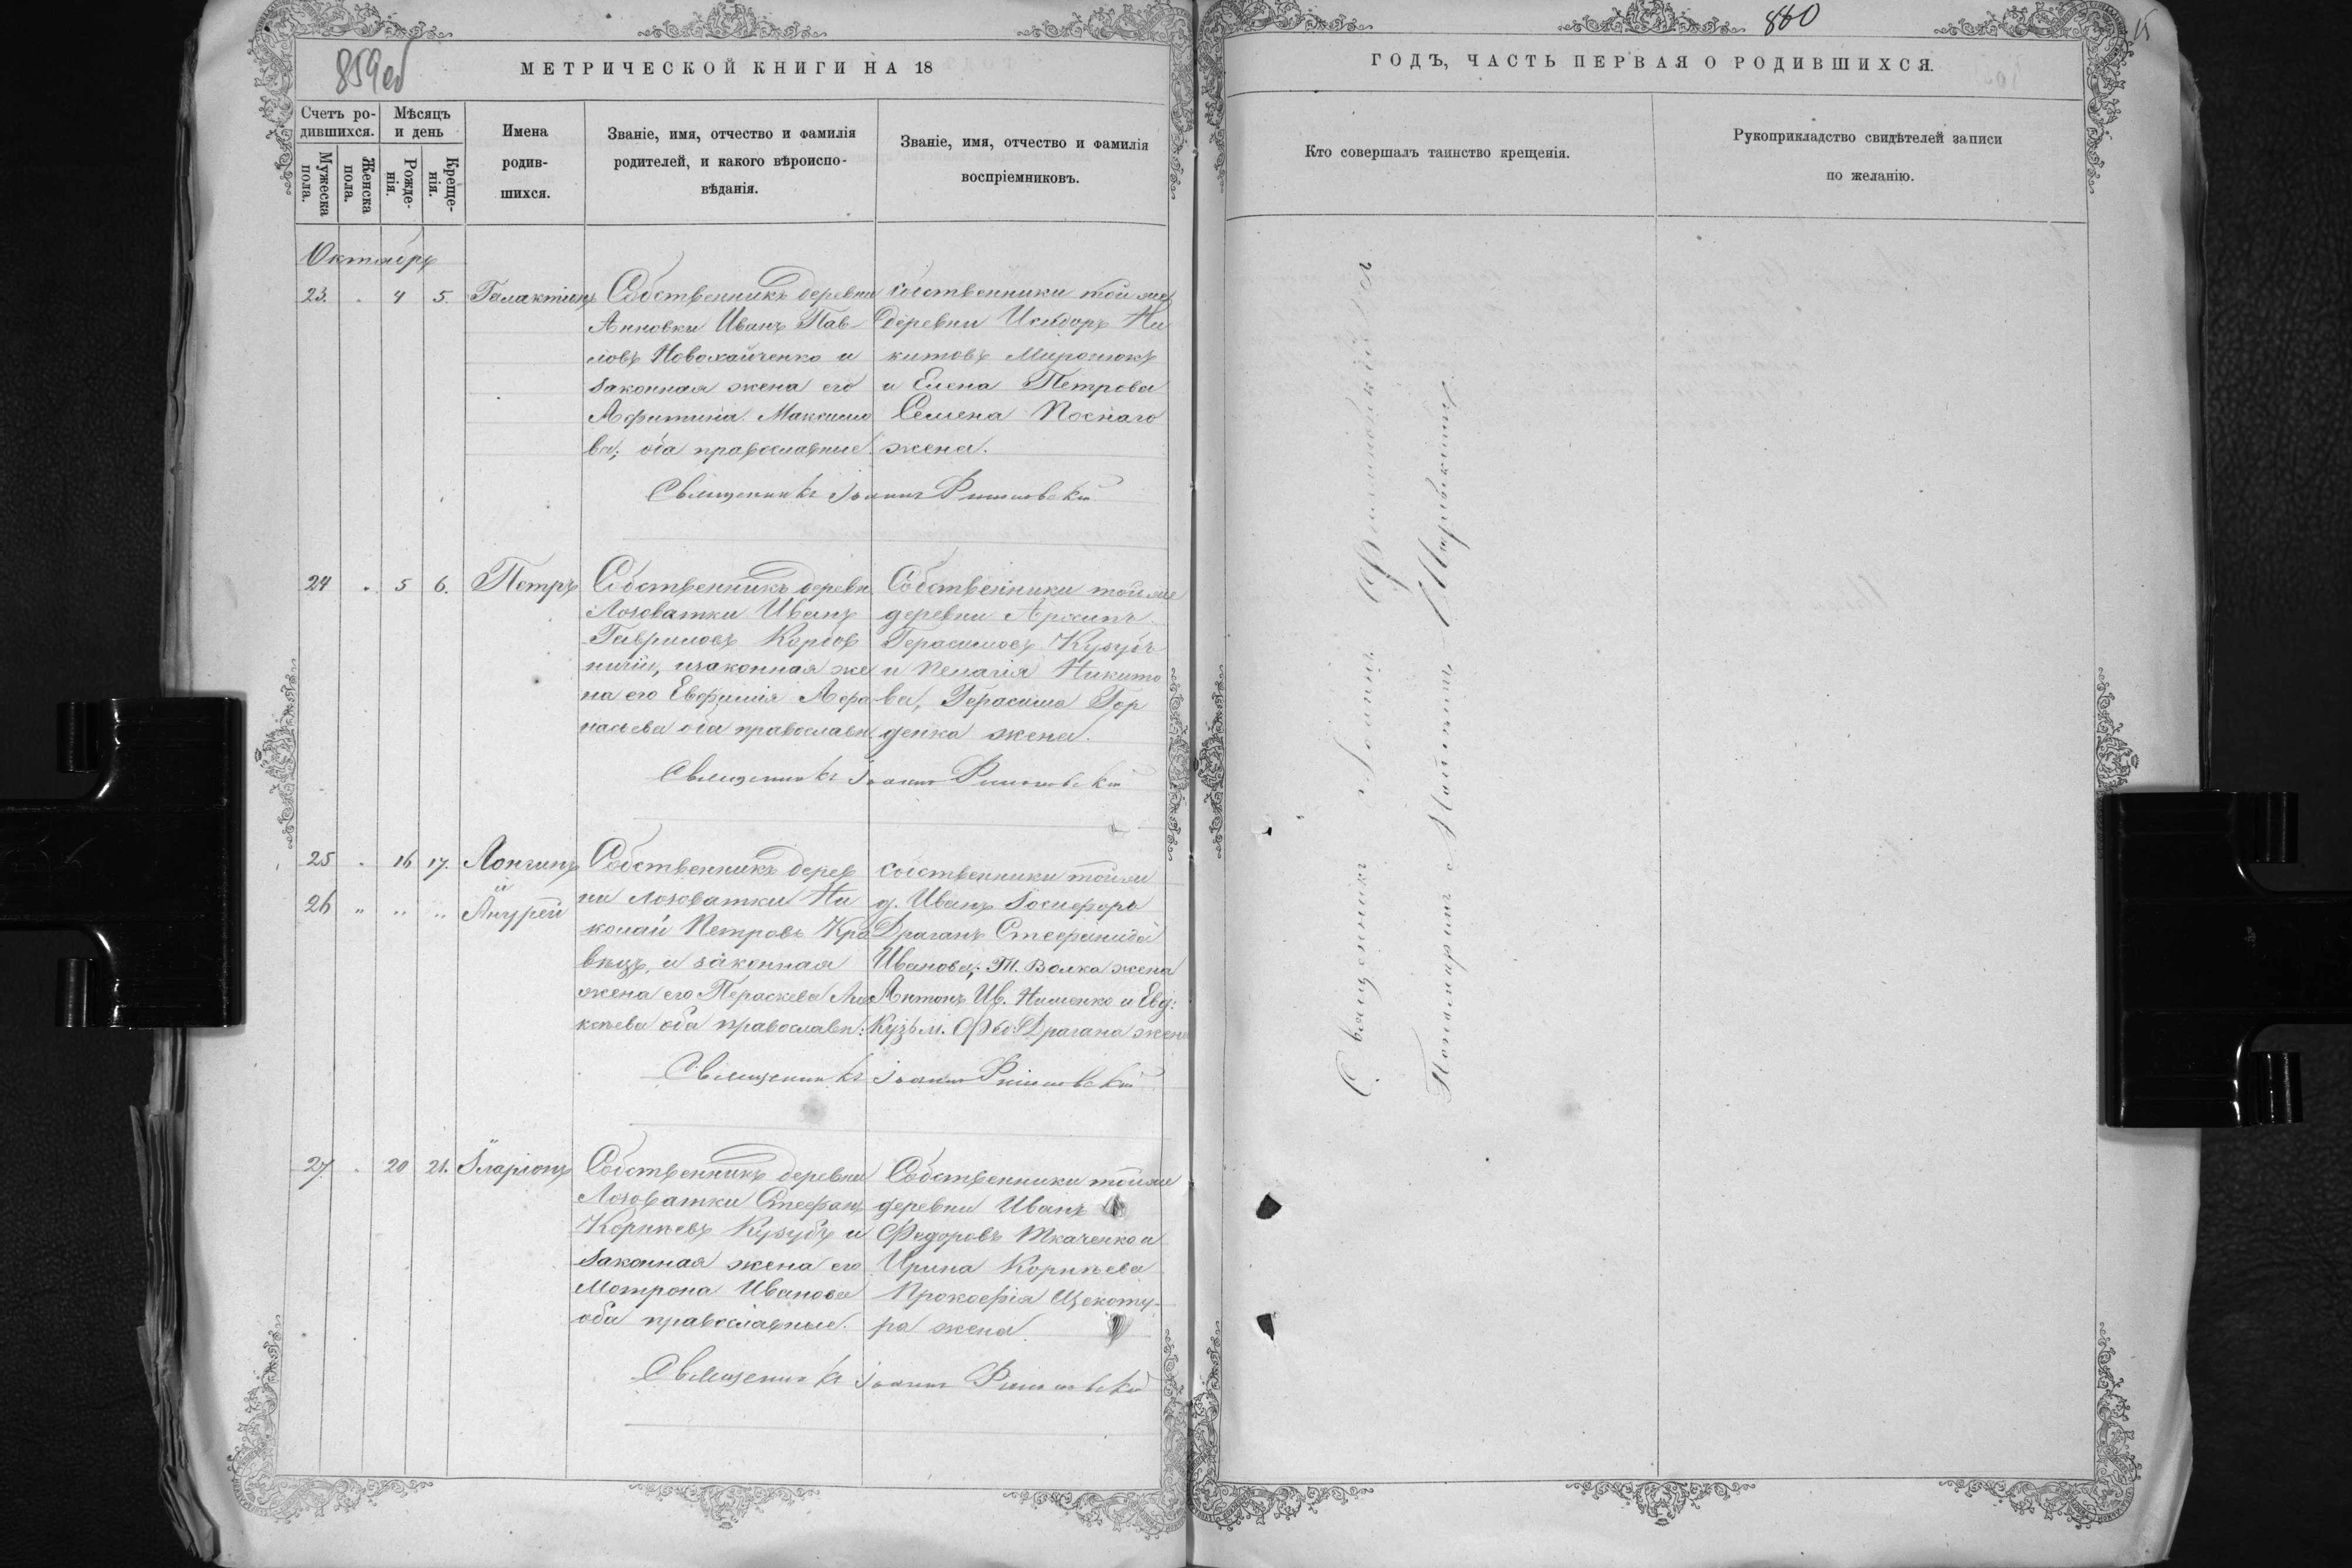 859об
МЕТРИЧЕСКОЙ КНИГИ НА 18
Счетъ ро-
дившихся.
Мужеска
пола.
Женска
пола.
Мѣсяцъ
и день
Рожде-
нія.
Креще-
нія.
Имена
родив-
шихся.
Званіе, имя, отчество и фамилія
родителей, и какого вѣроиспо-
вѣданія.
Званіе, имя, отчество и фамилія
воспріемниковъ.
Октябрь
23. " 4 5. Галактіонъ
Собственникъ деревни
Анновки Иванъ Пав-
ловъ Новохайченко и
законная жена его
Максимо
ва; оба православные.
собственники той же
деревни Исидоръ Ни
китовъ Миронюкъ
и Елена Петрова
Семена Поснаго
жена.
Священникъ Іоаннъ
24 " 5 6. Петръ
Собственникъ деревн.
Лозоватки Иванъ
Гавриловъ Корбов
ничій, изаконная же
на его Евфимія Афа
насьева оба православн.
Собственники той же
деревни Архипъ
Герасимовъ Кузубъ
и Пелагія Никито
ва, Герасима Гор
денка жена.
Священникъ Іоаннъ
25 " 16 17. Лонгинъ
и
26 " " " Андрей
Собственникъ дерев
ни Лозоватки Ни
колай Петровъ Кра
вецъ, и законная
жена его Параскева Але
ксѣева оба православн:
собственники той же
д. Иванъ Іосифовъ
Драганъ Стефанида
Иванова, Т. Волка жена
Антонъ Ив. Нименко и Евд:
Кузьм. Фед: Драгана жена
Священникъ Іоаннъ
27. " 20 21. Иларіонъ
Собственникъ деревни
Лозоватки Стефанъ
Корнѣевъ Кузубъ и
законная жена его
Мотрона Иванова
оба православные.
Собственники той же
деревни Иванъ
Федоровъ Ткаченко и
Ирина Корнѣева
Прокофія Щекоту-
ра жена.
Священникъ Іоаннъ
860
15
ГОДЪ, ЧАСТЬ ПЕРВАЯ О РОДИВШИХСЯ.
Кто совершалъ таинство крещенія.
Рукоприкладство свидѣтелей записи
по желанію.
Священникъ Іоаннъ
Пономаремъ